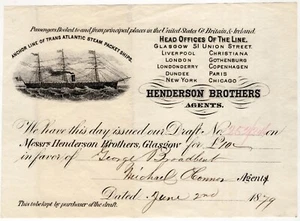 Passengers Booked to and from principal places in the United States, Gt. Britain, & Ireland.
ANCHOR LINE OF TRANS ATLANTIC STEAM PACKET SHIPS.
HEAD OFFICES OF THE LINE.
GLASGOW 51 UNION STREET.
LIVERPOOL CHRISTIANA
LONDON GOTHENBURG
LONDONDERRY COPENHAGEN
DUNDEE PARIS
NEW YORK CHICAGO
HENDERSON BROTHERS
AGENTS.
We have this day issued our Draft No. on
Messrs Henderson Brothers, Glasgow for £
in favor of George Broadbent
Michael Connor Agent
Dated June 2nd 1879
This to be kept by purchaser of the draft.